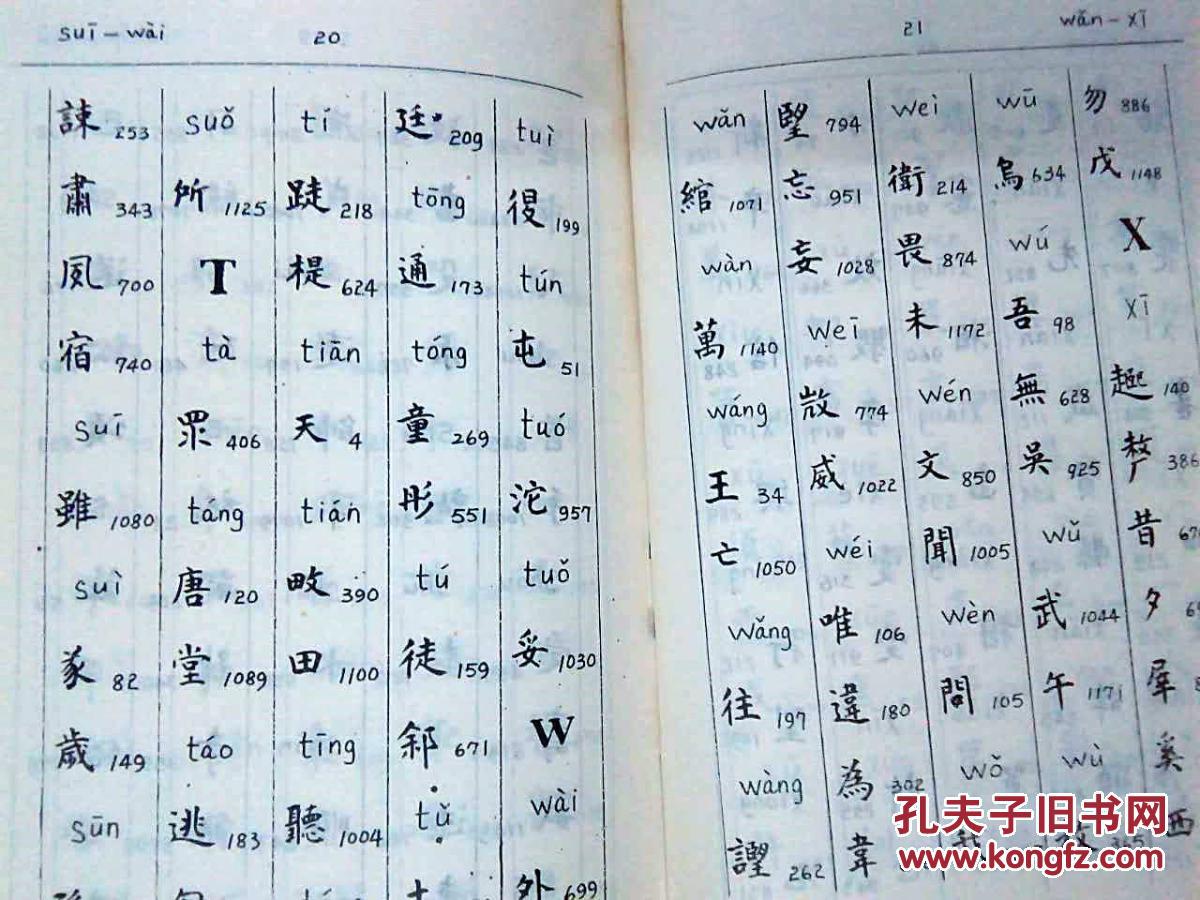 suī – wài 20
諫 253
肅 343
夙 700
宿 740
suī
雖 1080
suì
㒸 82
歲 149
sūn
suǒ
所 1125
T
tà
眔 406
táng
唐 120
堂 1089
táo
逃 183
tí
踶 218
ti
tiān
天 4
tián
畋 390
田 1100
tīng
聽 1004
廷 209
tōng
通 173
tóng
童 269
彤 551
tú
徒 159
䣄 671
tǔ
tuì
復 199
tún
屯 51
tuó
沱 957
tuǒ
妥 1030
W
wài
外 699
21 wǎn – xī
wǎn
綰 1071
wàn
萬 1140
wáng
王 34
亡 1050
wǎng
往 197
wàng
謹 262
朢 794
忘 951
妄 1028
wēi
敳 774
威 1022
wéi
唯 106
違 180
為 302
韋
wèi
衛 214
畏 874
未 1172
wén
文 850
聞 1005
wèn
問 105
wǒ
我
wū
烏 634
wú
吾 98
無 628
吳 925
wǔ
武 1044
午 1171
wù
敄 365
勿 886
戊 1148
X
xī
趩 140
𠩺 386
昔
夕
犀
奚
西
孔夫子旧书网
www.kongfz.com